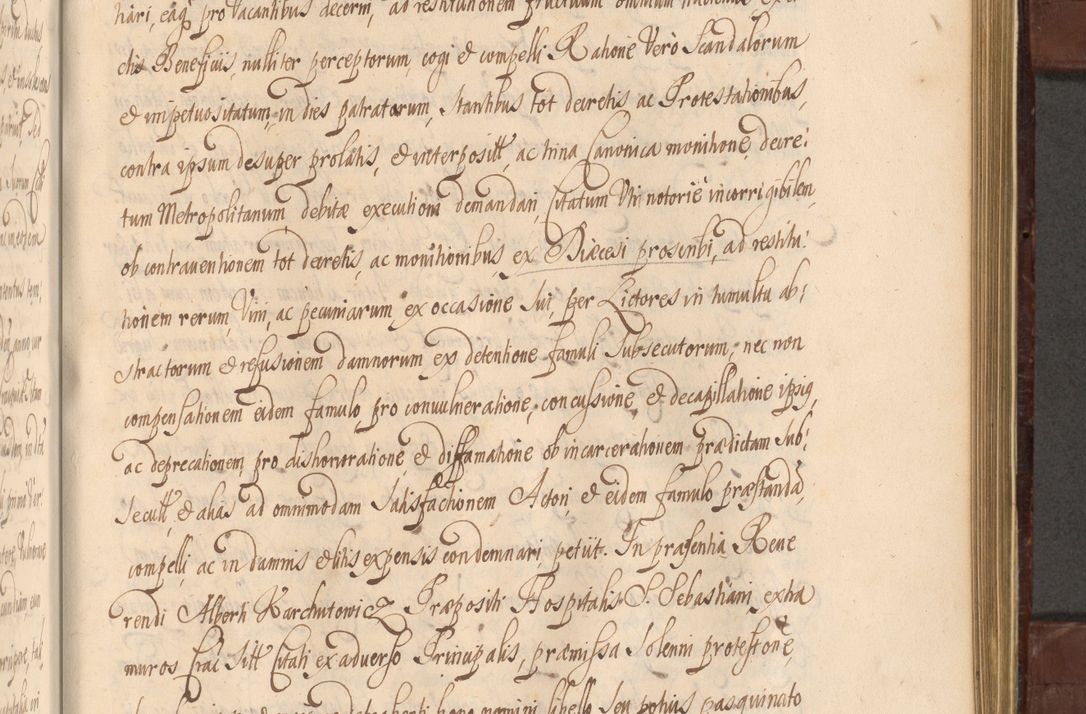 hari, eaq pro vacantibus decerni, ad restitutionem fructuum omnium
ctis Beneficiis, nulliter perceptorum, cogi & compelli Ratione Vero Scandalorum
& impetuositatum, in dies patratorum, Stantibus tot decretis ac Protestationibus,
contra ipsum desuper prolatis, & interposittt, ac trina Canonica monitione, decre:
tum Metropolitanum debitæ executioni demandari, Citatum Uti notoriè incorrigibilem,
ob contraventionem tot decretis, ac monitionibus ex Diæcesi proscribi, ad restitu:
tionem rerum, Vini, ac pecuniarum ex occasione Sui, per Lictores in tumultu ab:
stractorum & refusionem damnorum ex detentione famuli Subsecutorum, nec non
compensationem eidem famulo, pro convulneratione, concussione & decapillatione ipsiq,
ac deprecationem pro dishonoratione & diffamatione ob incarcerationem prædictam Sub:
secutt, & alias ad omnimodam Satisfactionem Actori, & eidem famulo præstandã,
compelli, ac in damnis & litis expensis condemnari petiit. In præsentia Reve
rendi Alberti Karchutowicz Præpositi Hospitalis S. Sebastiani extra
muros Crac Sitt Citati ex adverso Principalis, præmissa Solenni protestone,
hanc nomini libello Seu potius pasquinato